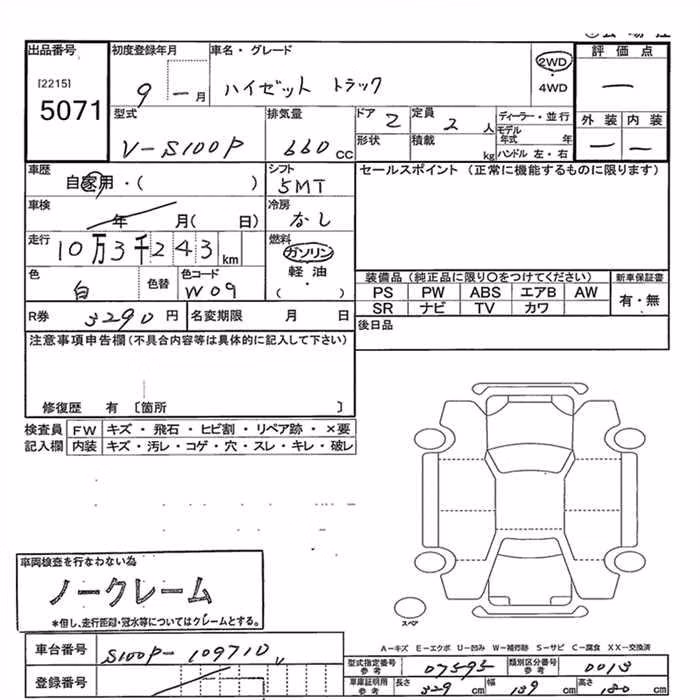 出品番号
[2215]
5071
初度登録年月
9 - 月
車名・グレード
ハイゼット トラック
2WD
・
4WD
評価点
—
型式
V-S100P
排気量
660 CC
ドア 2
定員 2 人
形状
積載 kg
ディーラー・並行
モデル年式 年
ハンドル 左・右
外装 内装
— —
車歴
自家用・( )
シフト
5MT
セールスポイント (正常に機能するものに限ります)
車検
年 月( 日)
冷房
なし
走行
10万3千243km
燃料
ガソリン
軽油
・
( )
色
白
色替
色コード
W09
装備品 (純正品に限り〇をつけてください)
新車保証書
PS PW ABS エアB AW
有・無
SR ナビ TV カワ
R券 3290 円
名変期限 月 日
後日品
注意事項申告欄(不具合内容等は具体的に記入して下さい)
修復歴 有 〔箇所 〕
検査員 FW キズ・飛石・ヒビ割・リペア跡・×要
記入欄 内装 キズ・汚レ・コゲ・穴・スレ・キレ・破レ
車両検査を行なわない為
ノークレーム
*但し、走行距離・冠水等についてはクレームとする。
スペア
A-キズ E-エクボ U-凹み W-補修跡 S-サビ C-腐食 XX-交換済
車台番号 S100P-109710
登録番号
型式指定番号 参考 07595
類別区分番号 参考 0013
車庫証明用 参考
長さ 329 cm
幅 139 cm
高さ 180 cm